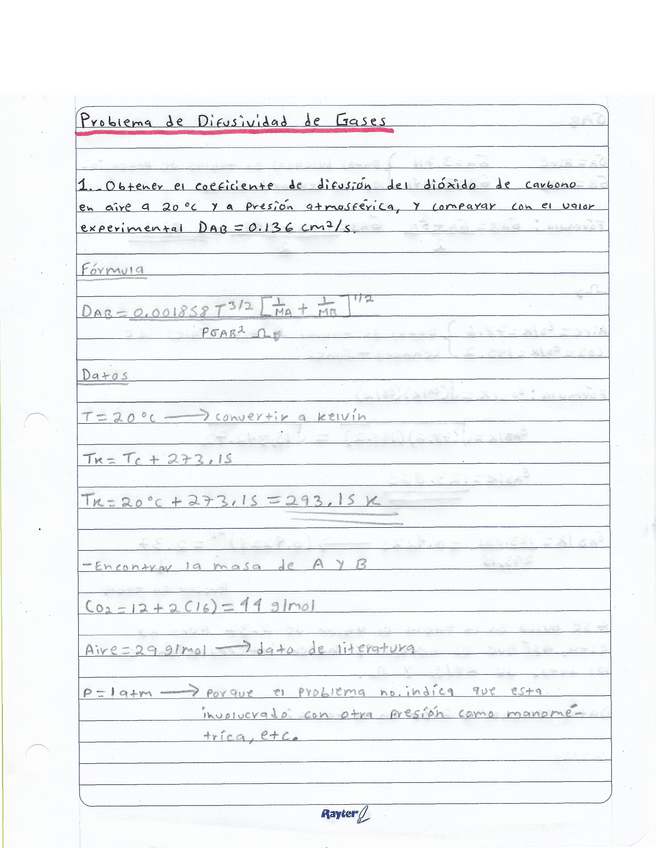 Problema de Difusividad de Gases
1.. Obtener el coeficiente de difusión del dióxido de carbono
en aire a 20 °C y a Presión atmosférica, y comparar con el valor
experimental DAB = 0.136 cm²/s.
Fórmula
DAB = 0.001858 T^3/2 [1/MA + 1/MB]^1/2
PσAB² Ω
Datos
T = 20 °C → convertir a kelvin
TK = TC + 273,15
TK = 20 °C + 273,15 = 293,15 K
- Encontrar la masa de A y B
CO2 = 12 + 2(16) = 44 g/mol
Aire = 29 g/mol → dato de literatura
P = 1 atm → Porque el problema no indica que esta
involucrado con otra presión como manomé-
trica, etc.
Rayter